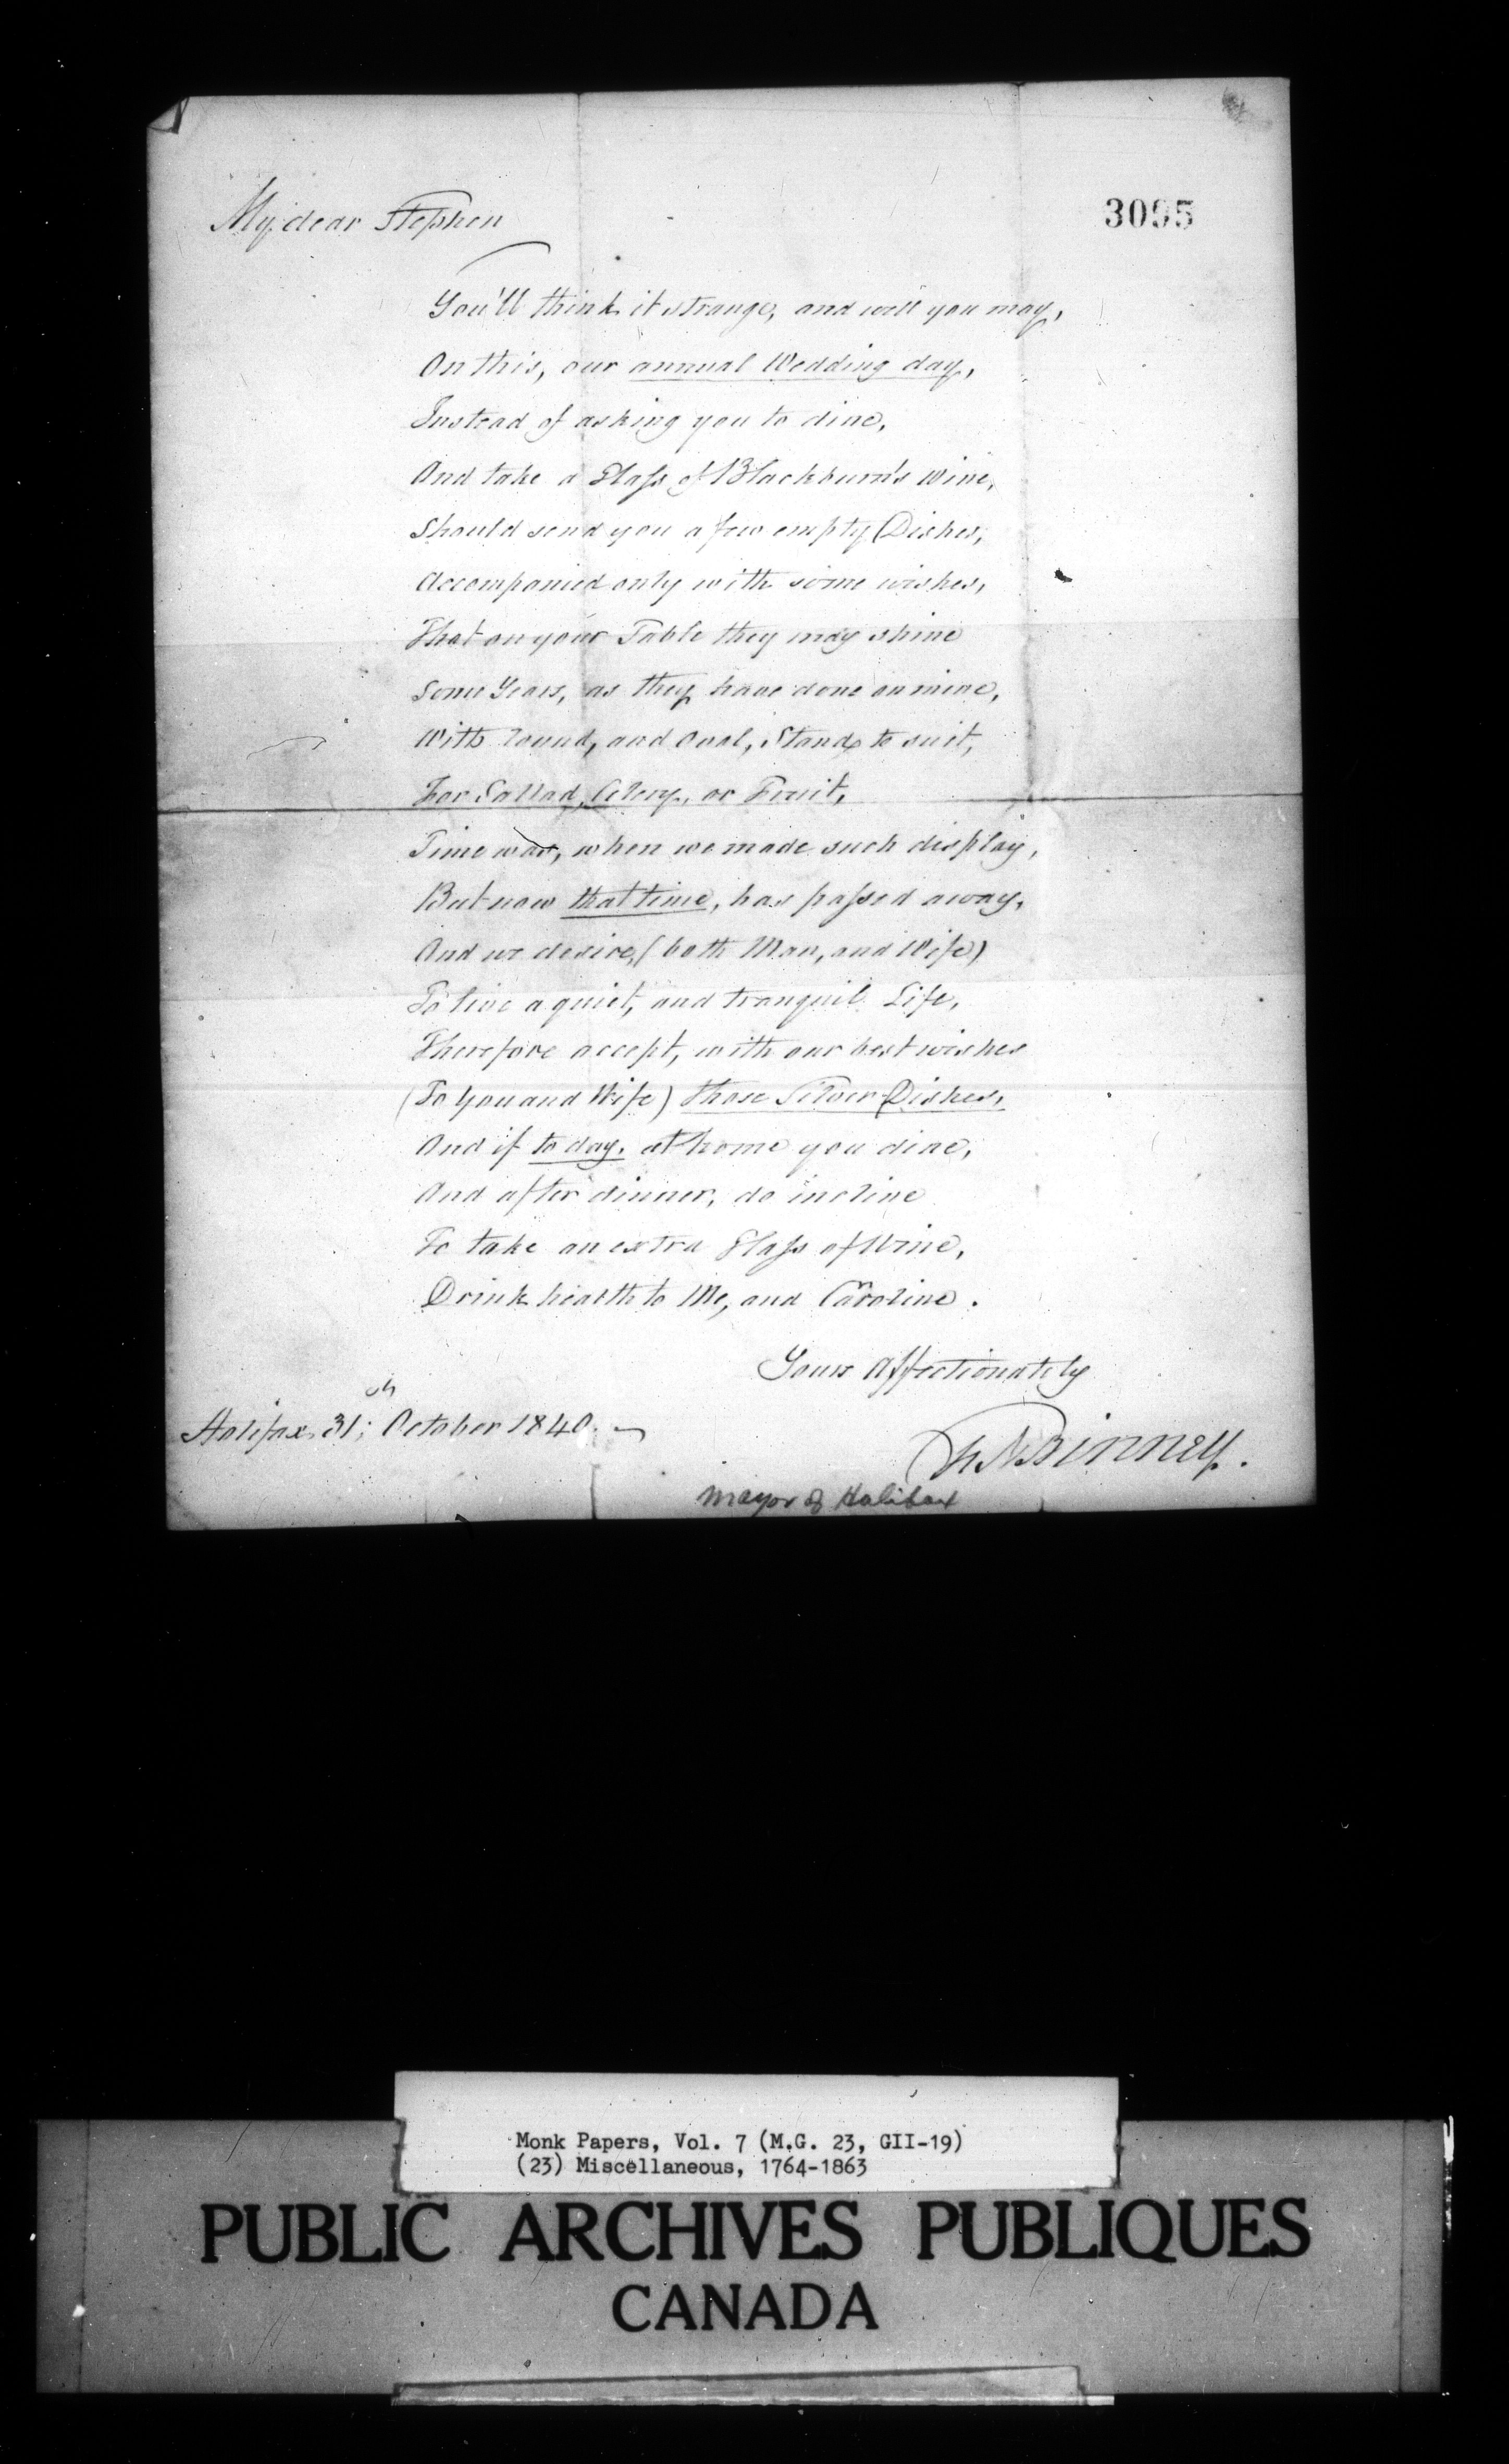 3095
My dear Stephen
You'll think it strange, and well you may,
On this, our annual Wedding day,
Instead of asking you to dine,
And take a Glass of Blackburn's Wine,
Should send you a few empty Dishes,
Accompanied only with some wishes,
That on your Table they may shine
Some Years, as they have done on mine,
With round, and Oval, Stands to suit,
For Sallad, Celery, or Fruit,
Time was, when we made such display,
But now that time, has passed away,
And we desire, (both Man, and Wife)
To live a quiet, and tranquil Life,
Therefore accept, with our best wishes
(To You and Wife) those Silver Dishes,
And if to day, at home you dine,
And after dinner, do incline
To take an extra Glass of Wine,
Drink health to Me, and Caroline.
Yours Affectionately
Halifax 31st October 1840.
Binney.
Mayor of Halifax
Monk Papers, Vol. 7 (M.G. 23, GII-19)
(23) Miscellaneous, 1764-1863
PUBLIC ARCHIVES PUBLIQUES
CANADA